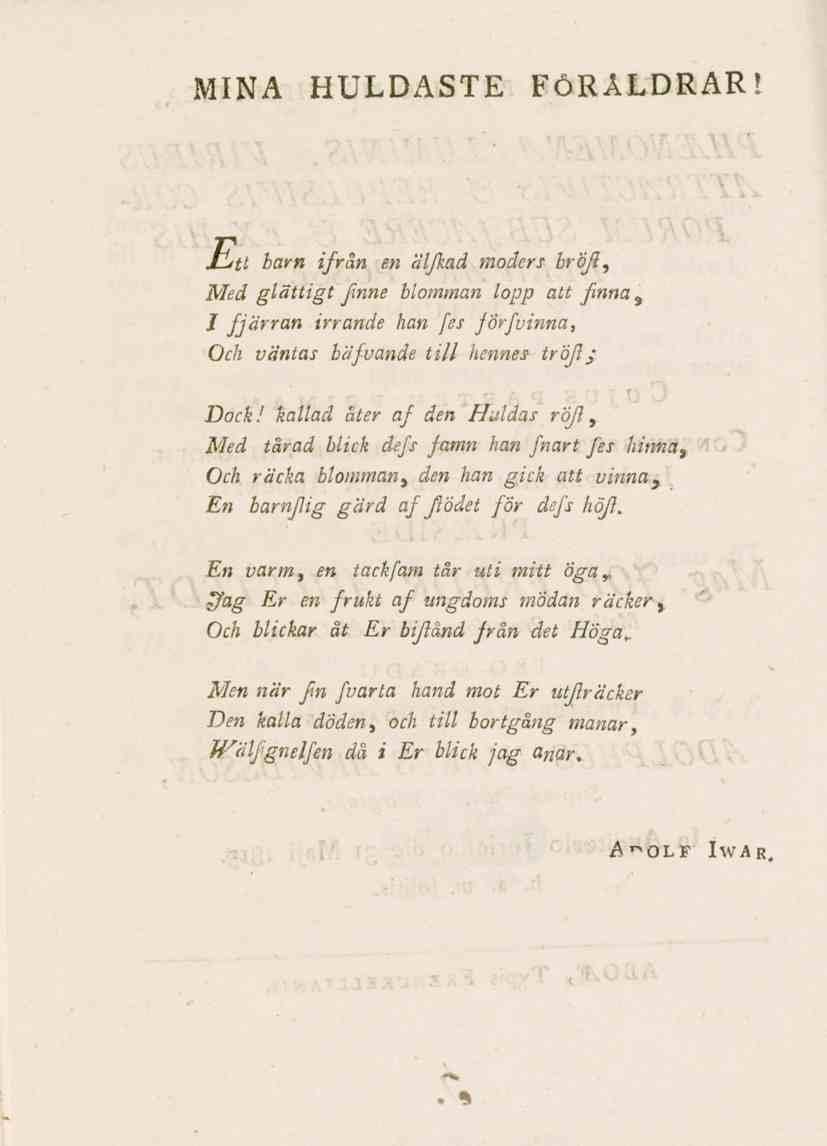 MINA HULDASTE FÖRÄLDRAR!
Ett barn ifrån en älſkad moders bröſt,
Med glättigt ſinne blomman lopp att finna,
I fjärran irrande han ſes förſvinna,
Och väntas bäfvande till hennes tröſt;
Dock! kallad åter af den Huldas röſt,
Med tårad blick deſs famn han ſnart ſes hinna,
Och räcka blomman, den han gick att vinna,
En barnſlig gärd af ſtödet för deſs höſt.
En varm, en tackſam tår uti mitt öga,
Jag Er en frukt af ungdoms mödan räcker,
Och blickar åt Er biſtånd från det Höga.
Men när ſin ſvarta hand mot Er utſträcker
Den kalla döden, och till bortgång manar,
Wälſignelſen då i Er blick jag anar.
ADOLF IWAR.